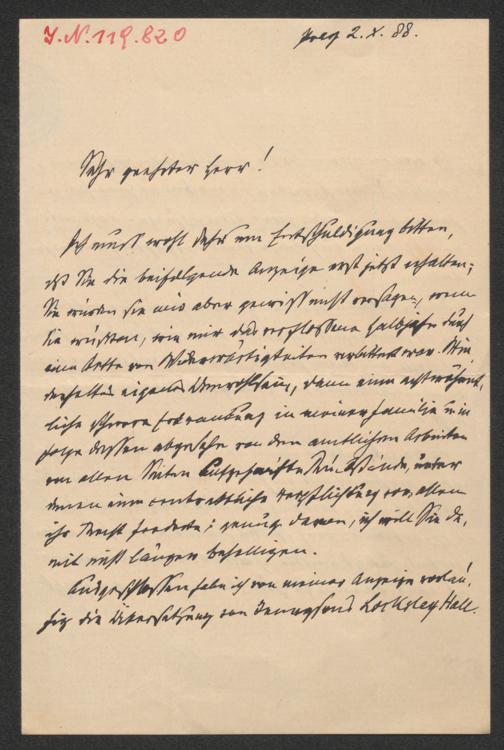 J.N. 119.820
Prag 2. X. 88.
Sehr geehrter Herr!
Ich muß wohl sehr um Entschuldigung bitten,
daß Sie die beifolgende Anzeige erst jetzt erhalten;
Sie würden sie mir aber gewiß nicht versagen, wenn
Sie wüßten, wie mir das verflossene Halbjahr durch
eine Kette von Widerwärtigkeiten verbittert war. Wie-
derholtes eigenes Unwohlsein, dann eine acht wöchent-
liche schwere Erkrankung in meiner Familie u in
Folge dessen abgesehen von den amtlichen Arbeiten
von allen Seiten aufgehäufte Rückstände, unter
denen eine contractliche Verpflichtung vor allem
ihr Recht forderte; genug davon, ich will Sie da-
mit nicht länger behelligen.
Ausgeschlossen habe ich von meiner Anzeige vorläu-
fig die Übersetzung von Tennysons Locksley Hall.